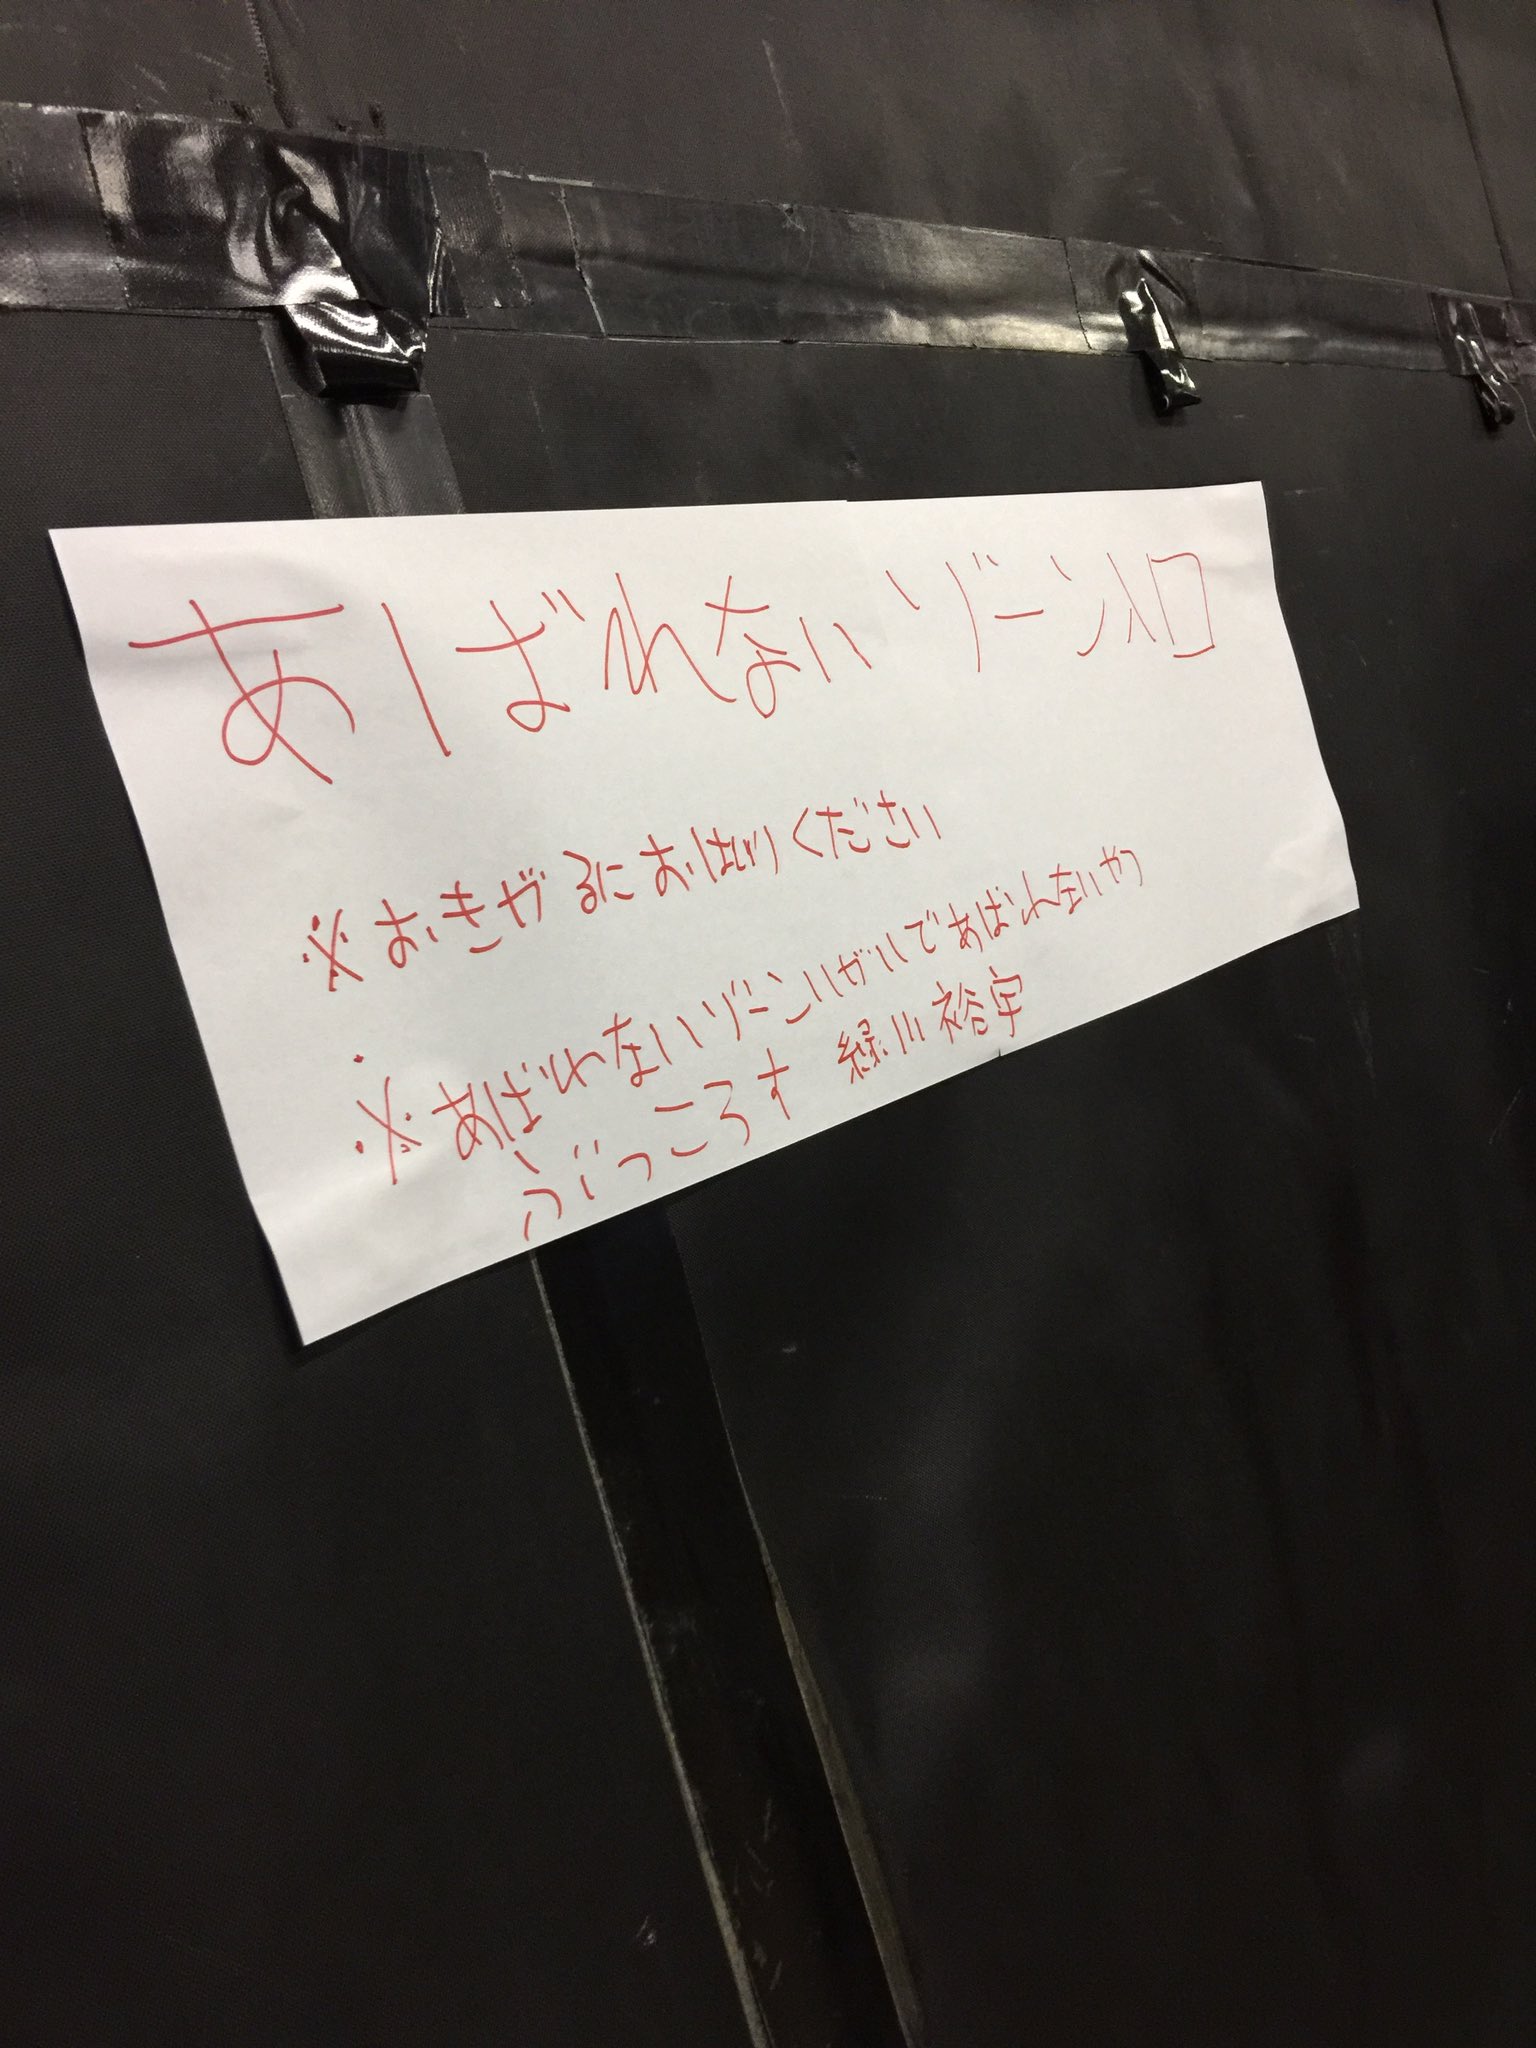 あばれないゾーン入口
※おきがるにおはいりください
※あばれないゾーンいがいであばれないやつ
ぶっころす 緑川裕宇